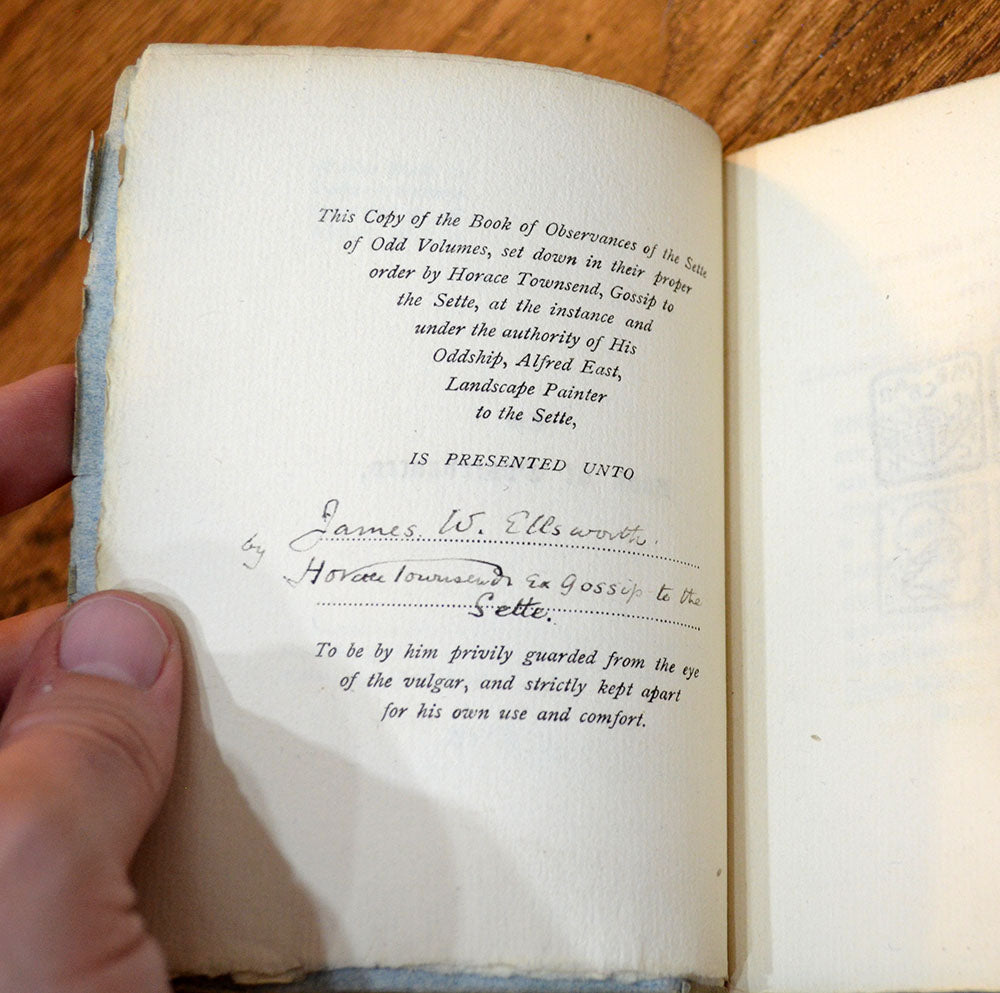 This Copy of the Book of Observances of the Sette
of Odd Volumes, set down in their proper
order by Horace Townsend, Gossip to
the Sette, at the instance and
under the authority of His
Oddship, Alfred East,
Landscape Painter
to the Sette,
IS PRESENTED UNTO
James W. Ellsworth.
by Horace Townsend Ex Gossip to the
Sette.
To be by him privily guarded from the eye
of the vulgar, and strictly kept apart
for his own use and comfort.